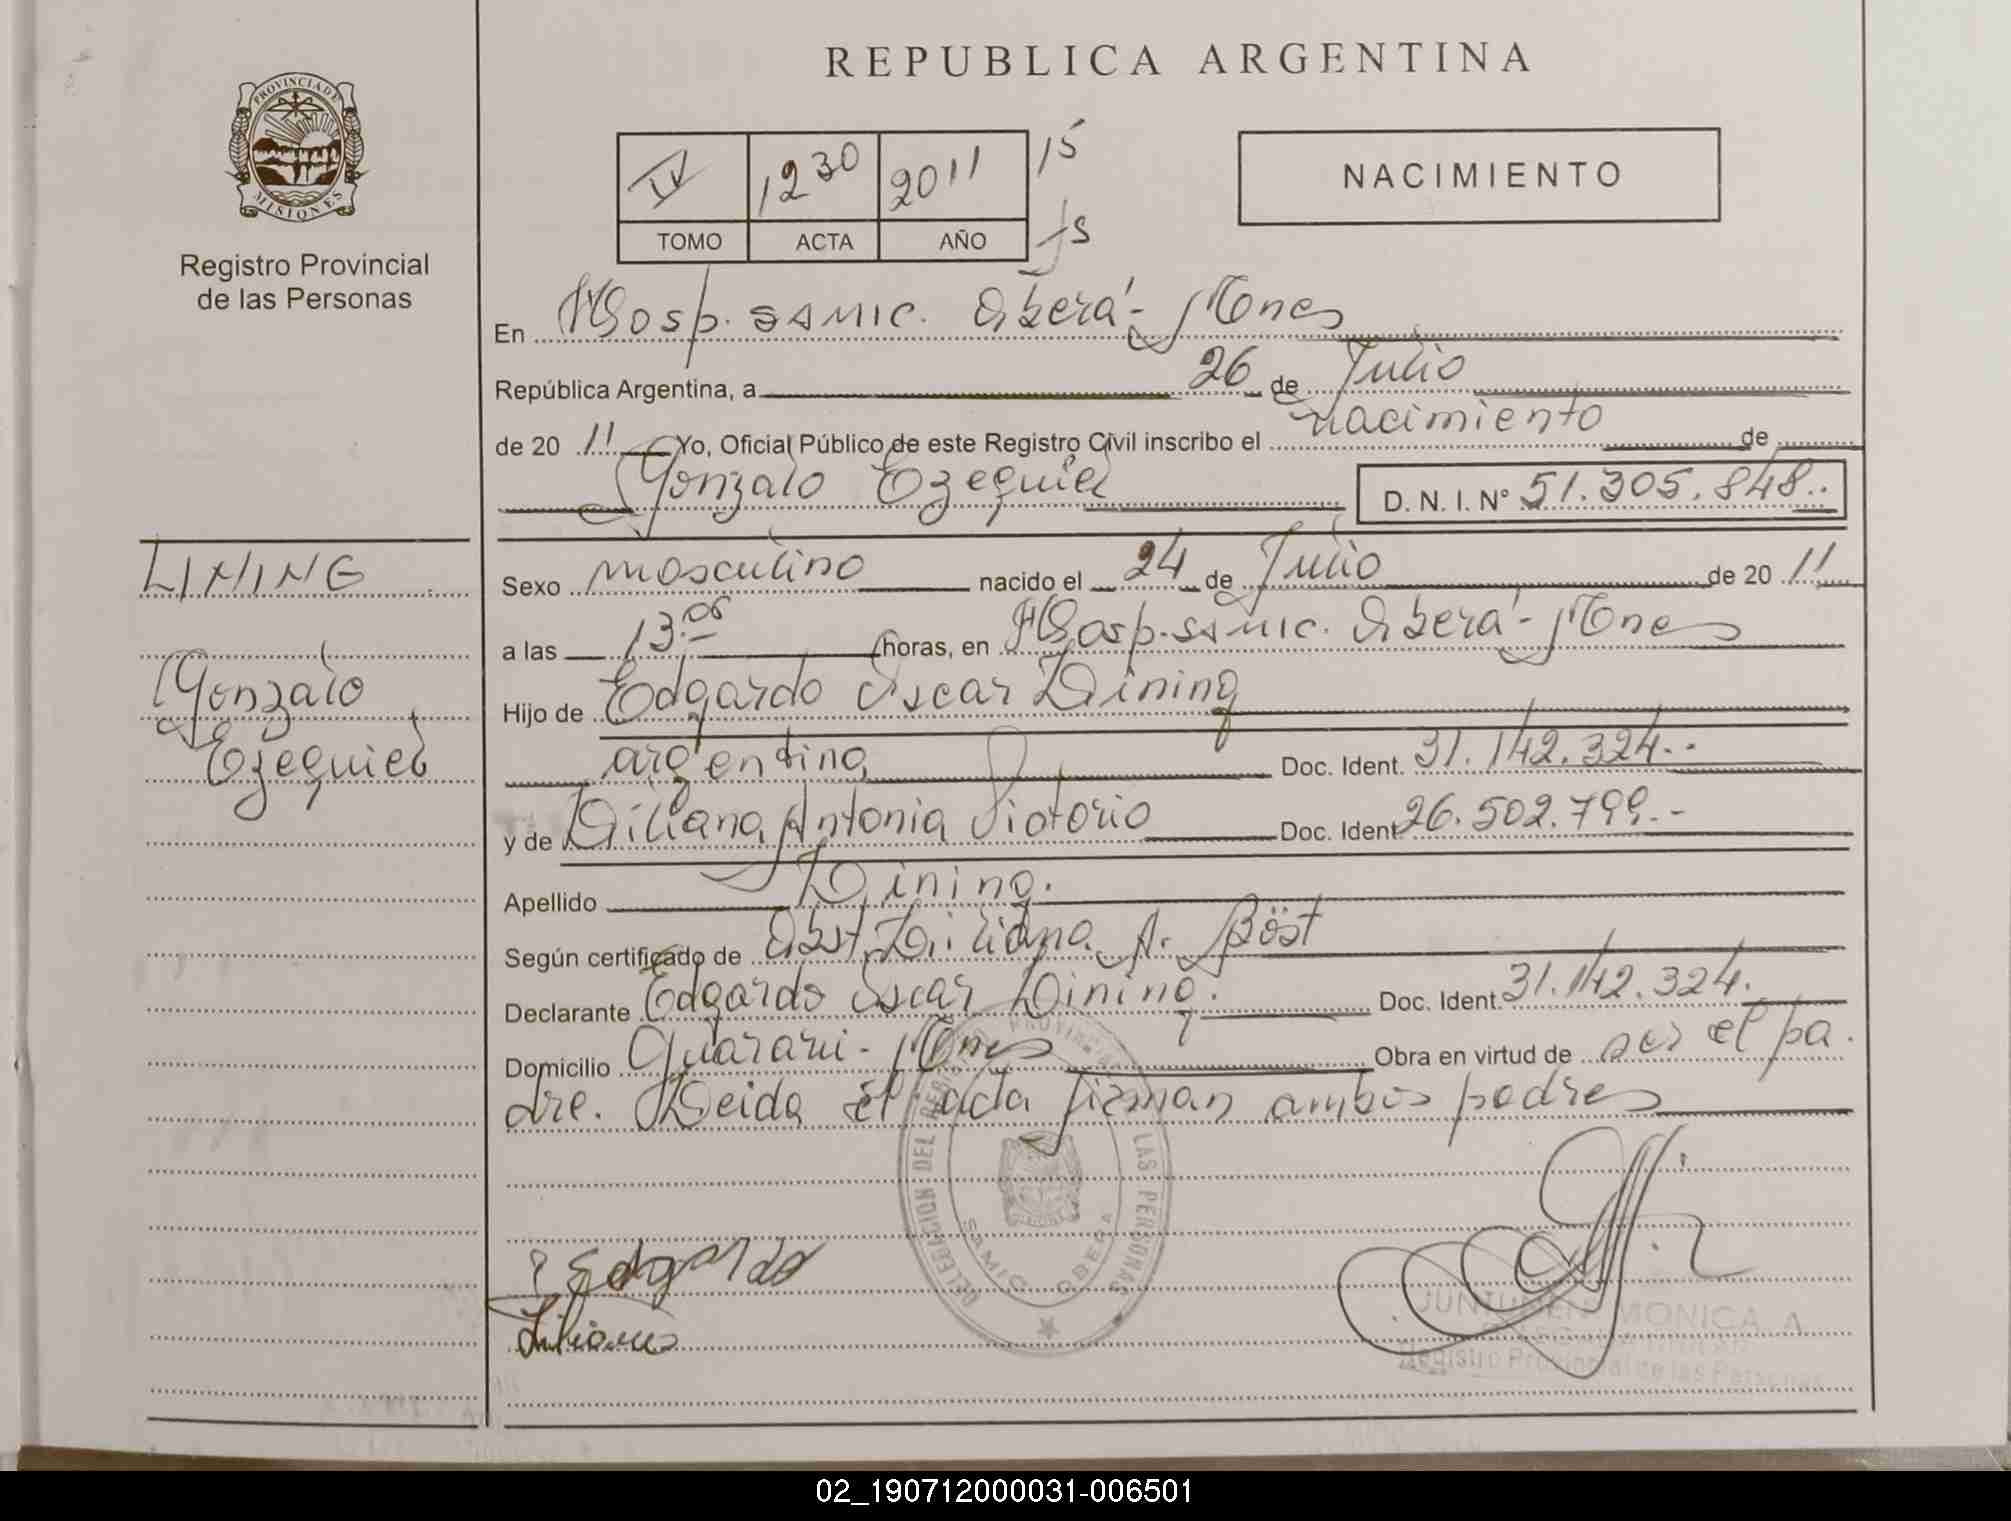 REPUBLICA ARGENTINA
PROVINCIA DE MISIONES
Registro Provincial
de las Personas
IV 1230 2011 15
TOMO ACTA AÑO
NACIMIENTO
En Hosp. SAMIC. Oberá - Mnes
República Argentina, a 26 de Julio
de 20 11 Yo, Oficial Público de este Registro Civil inscribo el nacimiento de
Gonzalo Ezequiel D. N. I. Nº 51.305.848..
LINING
Gonzalo
Ezequiel
Sexo masculino nacido el 24 de Julio de 20 11
a las 13.05 horas, en Hosp. SAMIC. Oberá - Mnes
Hijo de Edgardo Oscar Lining
argentino Doc. Ident. 31.142.324..
y de Liliana Antonia Victorio Doc. Ident. 26.502.799.-
Apellido Lining.
Según certificado de Obst. Liliana A. Böst
Declarante Edgardo Oscar Lining. Doc. Ident. 31.142.324.
Domicilio Guaraní - Mnes Obra en virtud de ser el pa.
dre. Leida el acta firman ambos padres
DELEGACION DEL REGISTRO PROVINCIAL DE LAS PERSONAS
SAMIC OBERA
Edgardo
Liliana
JUNTUNEN MONICA A
Registro Provincial de las Personas
02_190712000031-006501